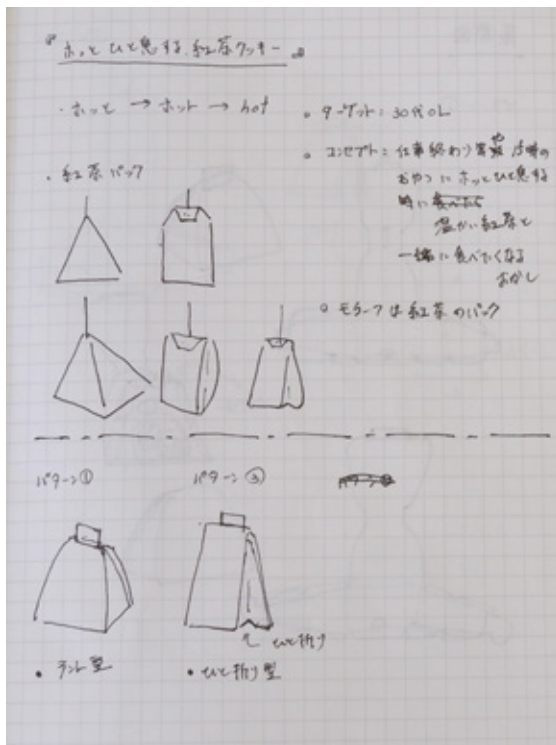 『ホッとひと息する.紅茶クッキー』
・ホッと → ホット → hot
・紅茶パック
・ターゲット：30代OL
・コンセプト：仕事終わり や 3時の
おやつに ホッとひと息する
時に
温かい紅茶と
一緒に食べたくなる
おかし
・モチーフは紅茶のパック
パターン①
パターン②
ひと折り
・テント型
・ひと折り型